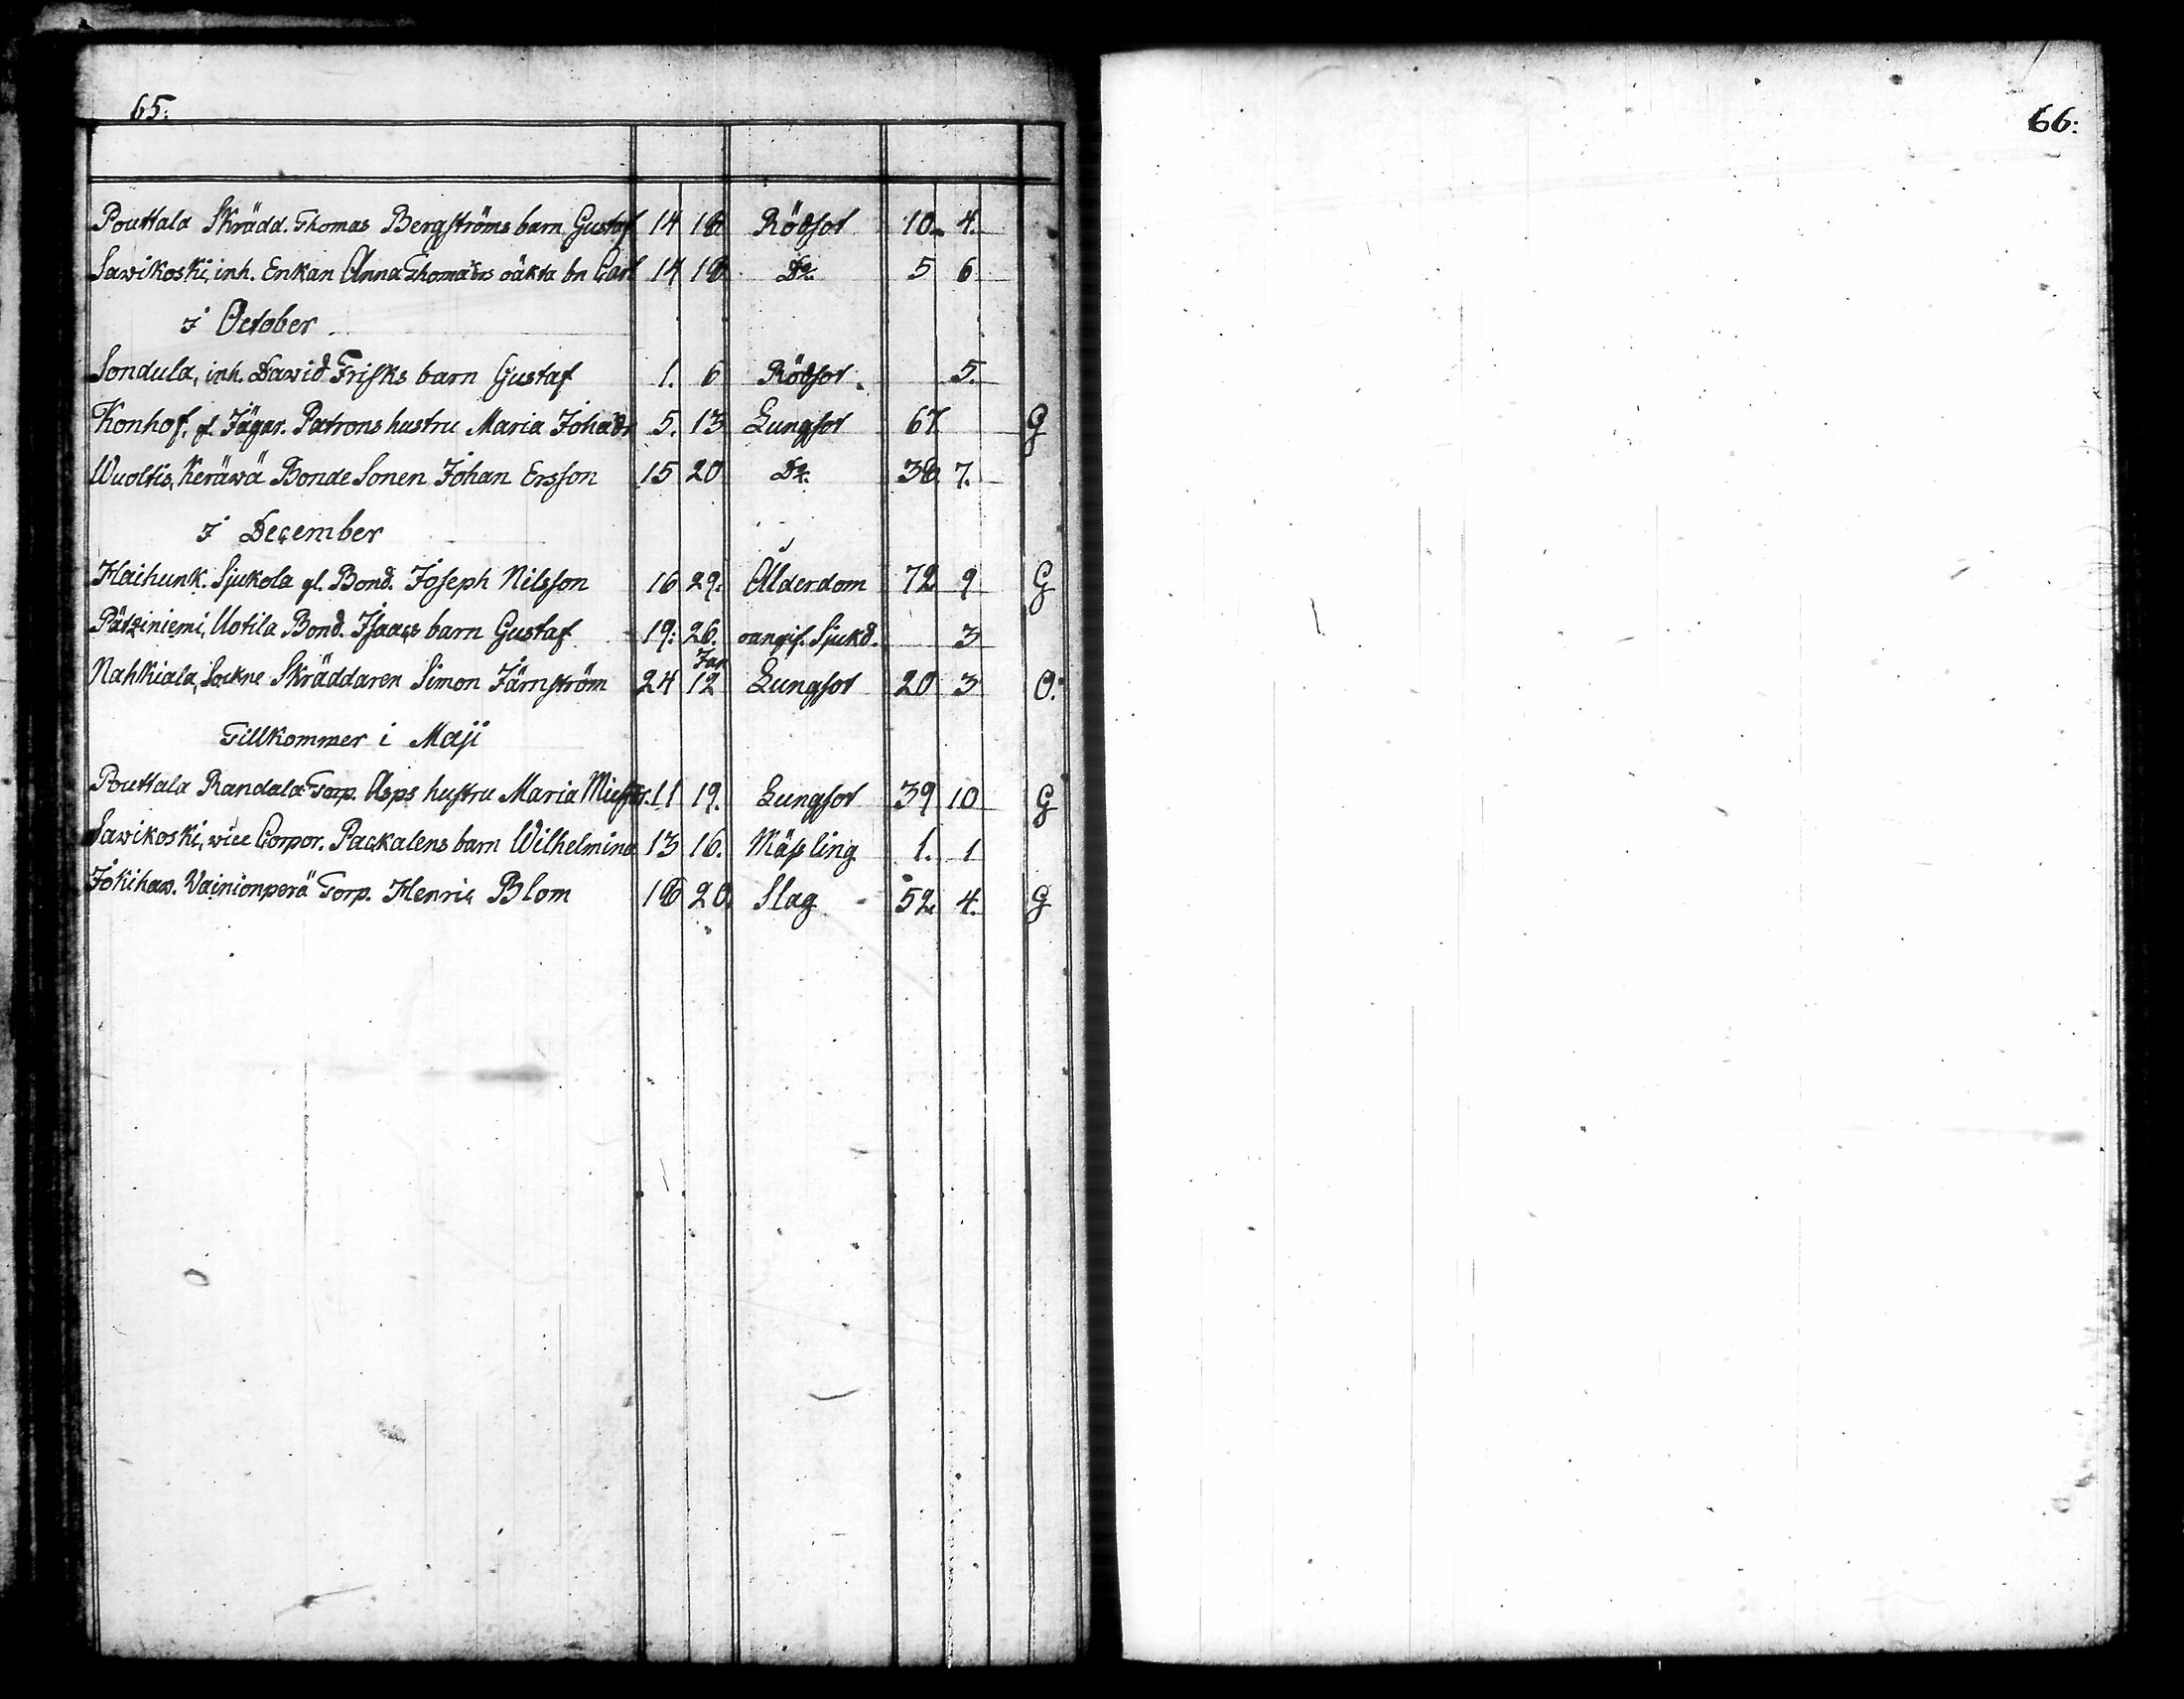 65:
66:
Pouttala Skrädd. Thomas Bergströms barn Gustaf 14 18 Rödsot 10. 4.
Sawikoski, inh. Enkan Anna Thomædrs oäkta bn Carl 14 18 Do 5 6
I October
Sondula, inh. Dawid Frisks barn Gustaf 1. 6 Rödsot. 5.
Konhof, gl. Jägar. Patrons hustru Maria Johadr 5. 13 Lungsot 67 G
Wuoltis, Keräwä Bonde Sonen Johan Ersson 15 20 Do. 38. 7.
I December
Haihunk. Sjukola gl. Bond. Joseph Nilsson 16 29. Ålderdom 72 9 G
Pätziniemi, Uotila Bond. Isaacs barn Gustaf 19: 26. oangif. Sjukd. 3
Nahkiala, Sockne Skräddaren Simon Järnström 24 Jan 12 Lungsot 20 3 O.
Tillkommer i Maji
Pouttala Randala Torp. Asps hustru Maria 11 19. Lungsot 39 10 G
Sawikoski, wice Corpor. Packalens barn Wilhelmina 13 16. Mässling 1. 1
Jokihaw. Wainionperä Torp. Henric Blom 18 20. Slag 52. 4. G